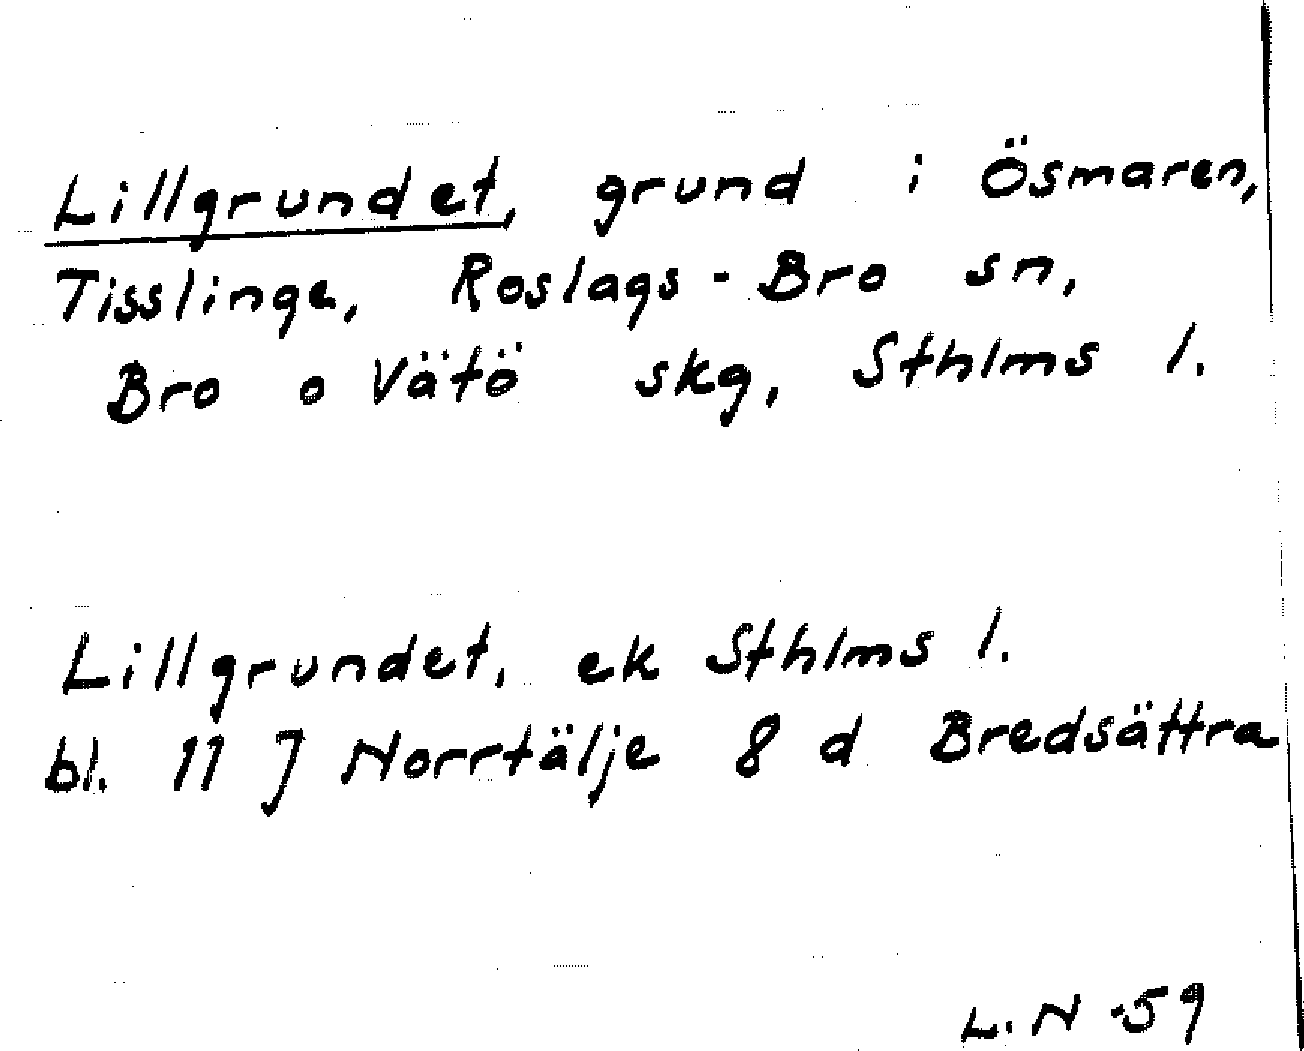 Lillgrundet, grund i Ösmaren,
Tisslinge, Roslags-Bro sn,
Bro o Vätö skg, Sthlms l.
Lillgrundet, ek Sthlms l.
bl. 11 J Norrtälje 8 d Bredsättra
L. N -59